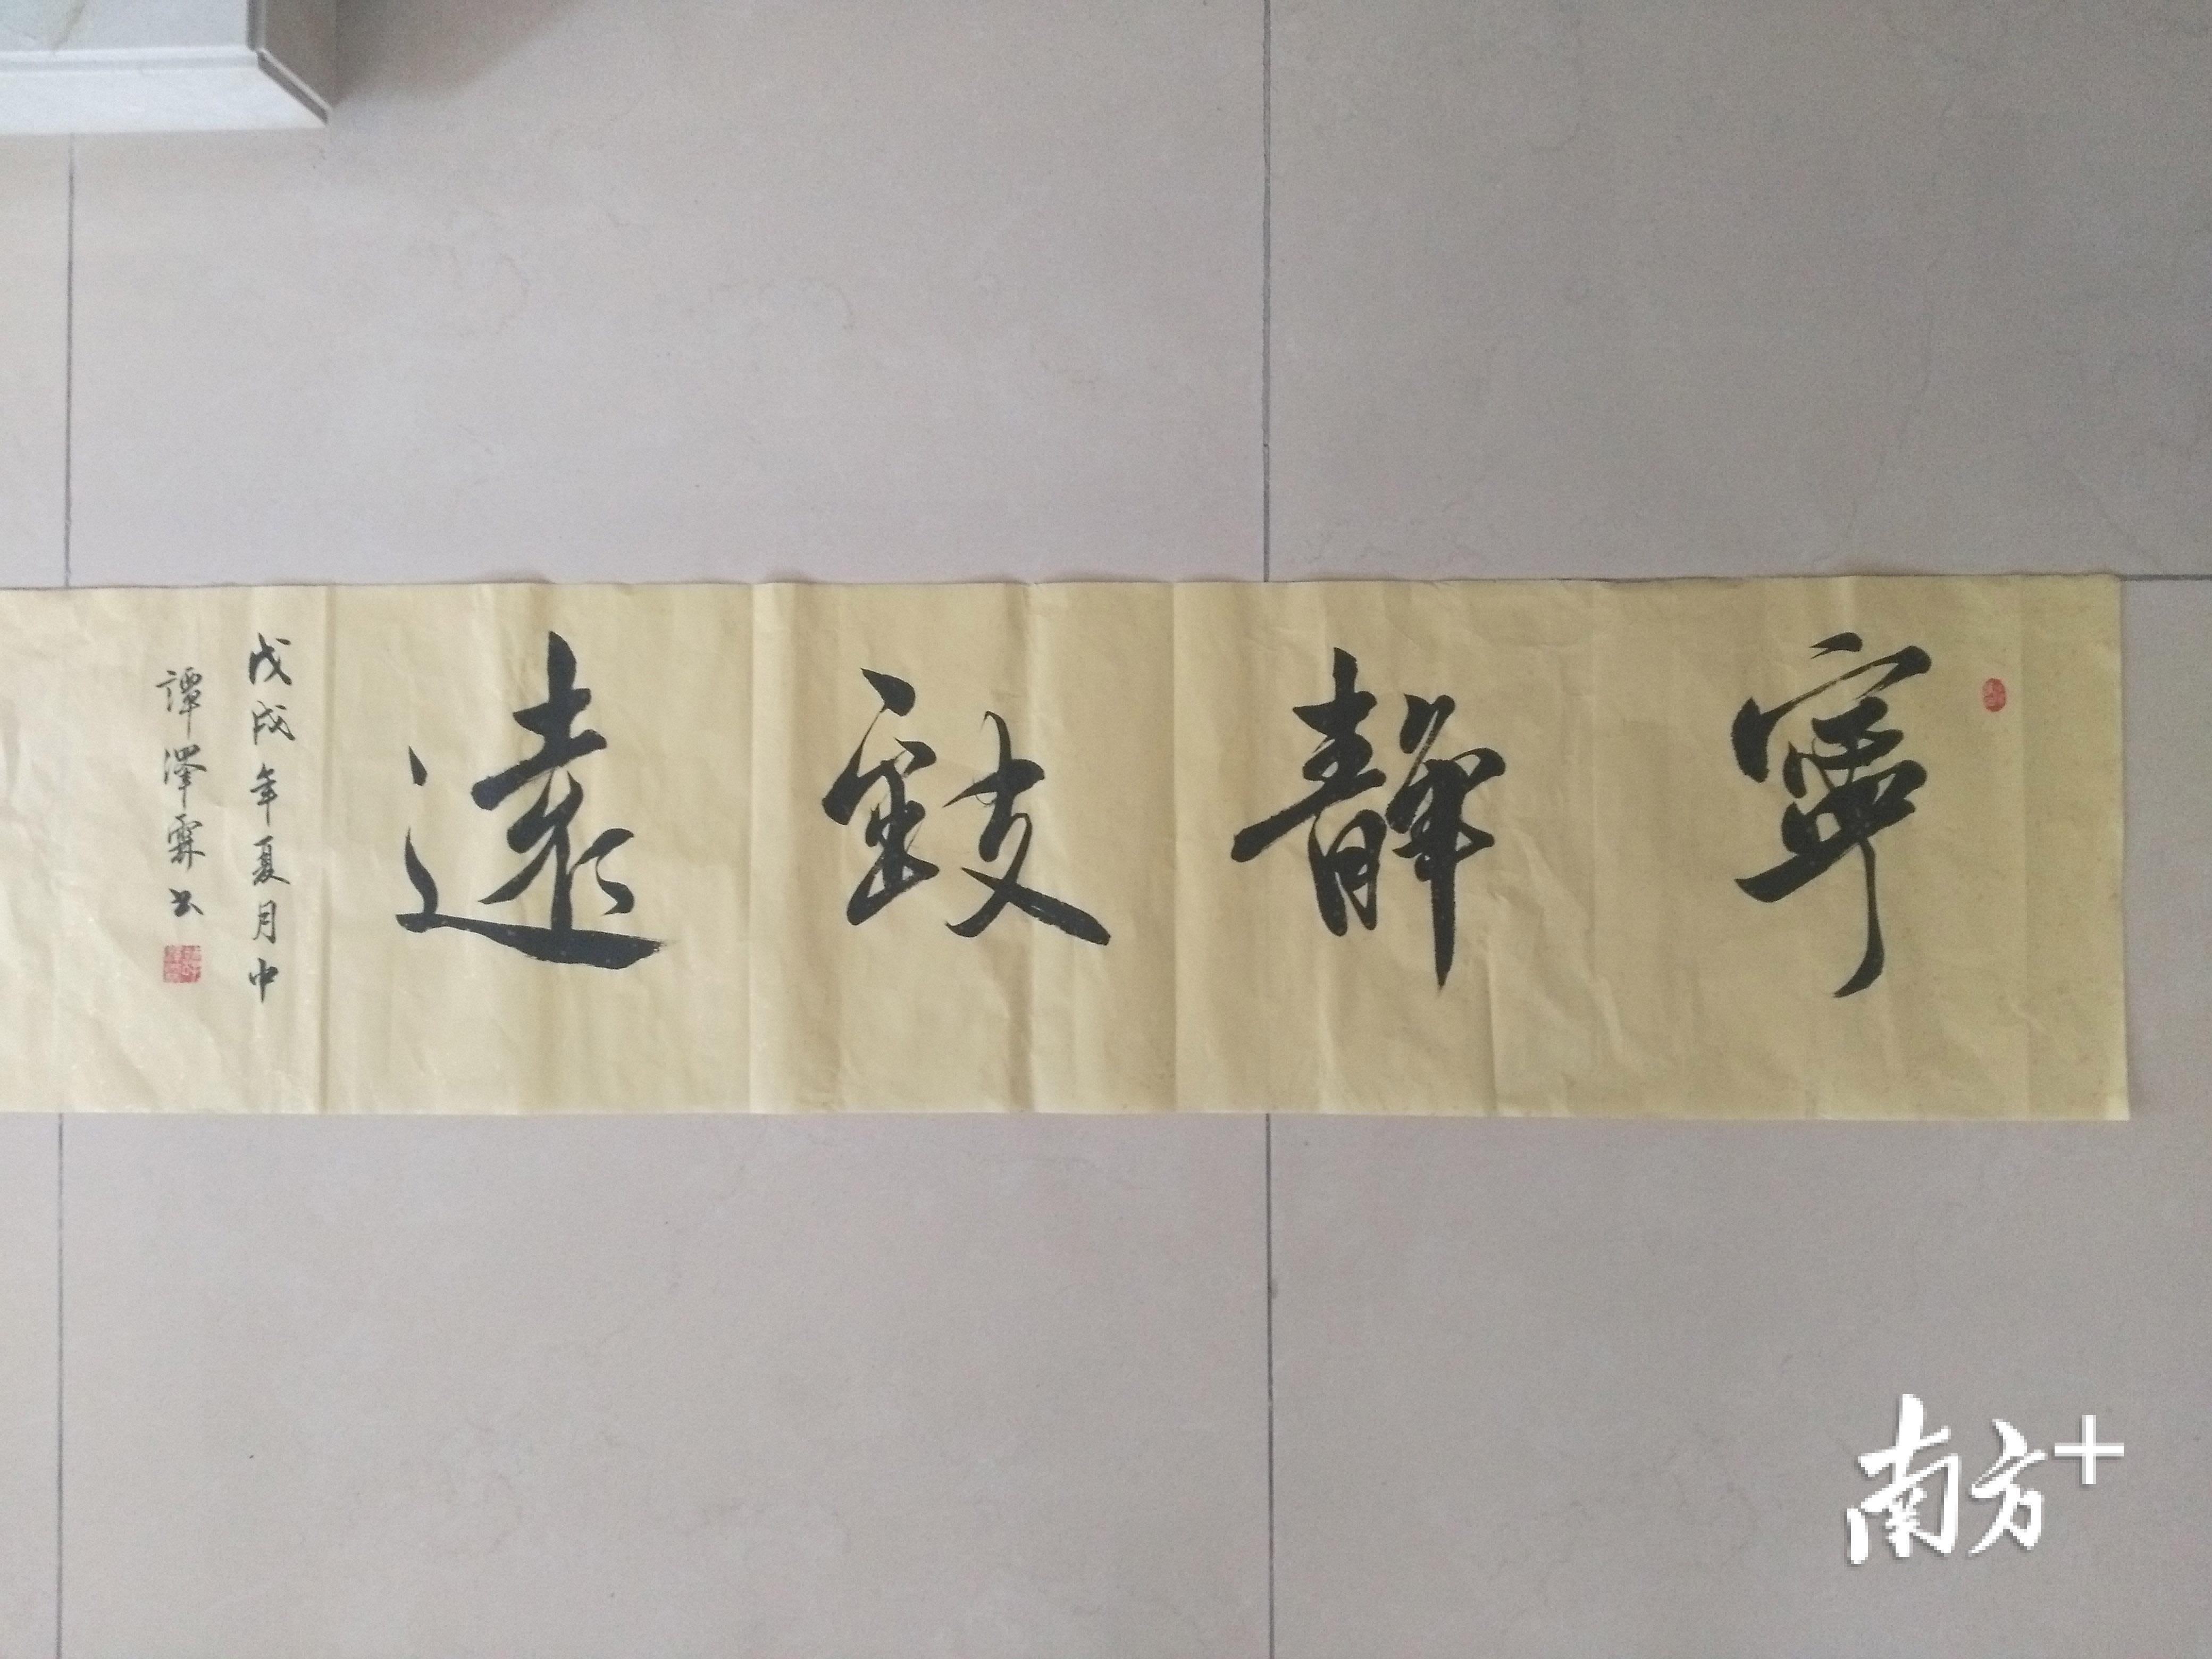 寧靜致遠
戊戌年夏月中
譚澤霖书
南方+